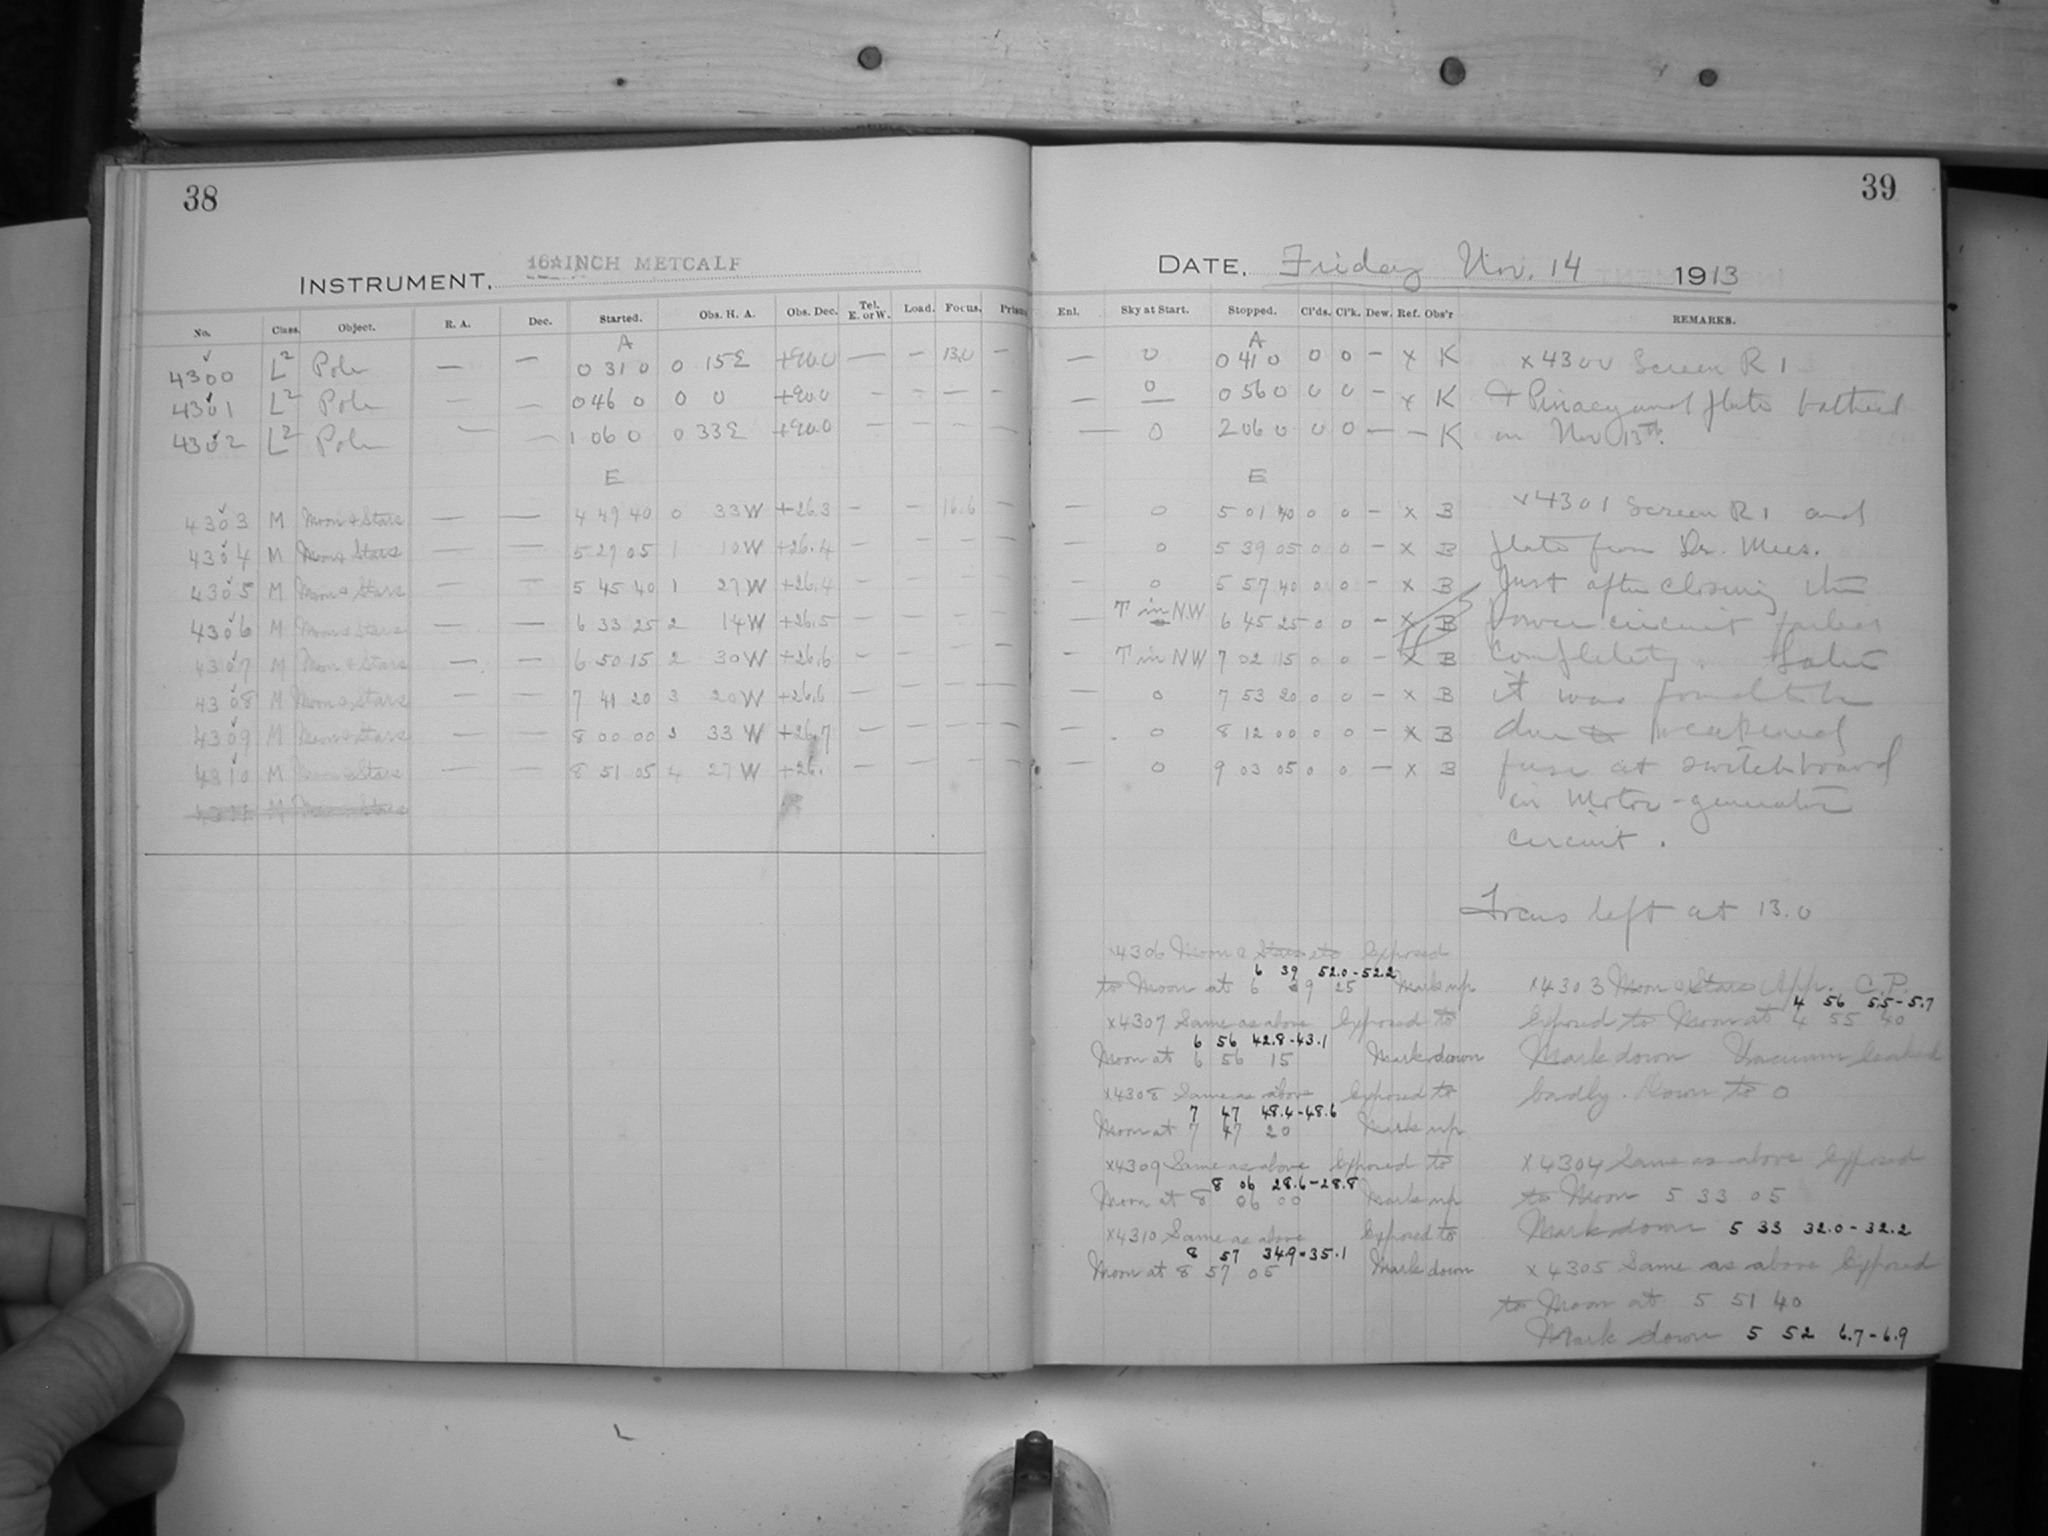 38
INSTRUMENT, 16 INCH METCALF
No. Class. Object. R. A. Dec. Started. Obs. H. A. Obs. Dec. Tel. E. or W. Load. Focus. Prism
A
4300 L2 Pole — — 0 31 0 0 15 E +90.0 — — 13.0 —
4301 L2 Pole — — 0 46 0 0 0 +90.0 — — — —
4302 L2 Pole — — 1 06 0 0 33 E +90.0 — — — —
E
4303 M Moon & Stars — — 4 49 40 0 33 W +26.3 — — 16.6 —
4304 M Moon & Stars — — 5 27 05 1 10 W +26.4 — — — —
4305 M Moon & Stars — — 5 45 40 1 27 W +26.4 — — — —
4306 M Moon & Stars — — 6 33 25 2 14 W +26.5 — — — —
4307 M Moon & Stars — — 6 50 15 2 30 W +26.6 — — — —
4308 M Moon & Stars — — 7 41 20 3 20 W +26.6 — — — —
4309 M Moon & Stars — — 8 00 00 3 33 W +26.7 — — — —
4310 M Moon & Stars — — 8 51 05 4 27 W +26. — — — —
4311 M Moon & Stars
39
DATE, Friday Nov. 14 1913
Enl. Sky at Start. Stopped. Cl'ds. Cl'k. Dew. Ref. Obs'r REMARKS.
A
— 0 0 41 0 0 0 — x K x4300 Screen R 1
— 0 0 56 0 0 0 — x K & Pinacyanol plate bathed
— 0 2 06 0 0 0 — — K on Nov 13th.
E
— 0 5 01 40 0 0 — x B x4301 Screen R1 and
— 0 5 39 05 0 0 — x B plate from Dr. Mees.
— 0 5 57 40 0 0 — x B Just after closing the
— T in N.W 6 45 25 0 0 — x B power circuit failed
— T in NW 7 02 15 0 0 — x B completely. Later
— 0 7 53 20 0 0 — x B it was found to be
— 0 8 12 00 0 0 — x B due to weakened
— 0 9 03 05 0 0 — x B fuse at switchboard
in Motor-generator
circuit.
Focus left at 13.0
x4306 Moon & Stars etc Exposed
6 39 52.0-52.2
to Moon at 6 39 25 Mark up
x4307 Same as above Exposed to
6 56 42.8-43.1
Moon at 6 56 15 Mark down
x4308 Same as above Exposed to
7 47 48.4-48.6
Moon at 7 47 20 Mark up
x4309 Same as above Exposed to
8 06 28.6-28.8
Moon at 8 06 00 Mark up
x4310 Same as above Exposed to
8 57 34.9-35.1
Moon at 8 57 05 Mark down
x4303 Moon & Stars App. C.P.
4 56 5.5-5.7
Exposed to Moon at 4 55 40
Mark down Vacuum leaked
badly. Down to 0
x4304 Same as above Exposed
to Moon 5 33 05
Mark down 5 33 32.0-32.2
x4305 Same as above Exposed
to Moon at 5 51 40
Mark down 5 52 6.7-6.9